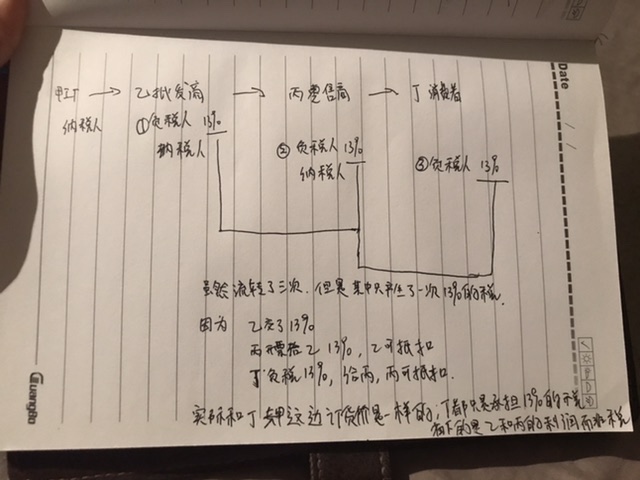 Date
甲工厂 → 乙批发商 → 丙零售商 → 丁消费者
纳税人 ①负税人 13% ②负税人 13% ③负税人 13%
纳税人 纳税人
虽然流转了三次,但是其中只产生了一次13%的税.
因为 乙交了13%
丙开票给乙 13%, 乙可抵扣
丁负税13%, 给丙, 丙可抵扣.
实际和丁去甲这边订货价是一样的,丁都只是承担13%的税
剩下的是乙和丙的利润而非税
Guangbo